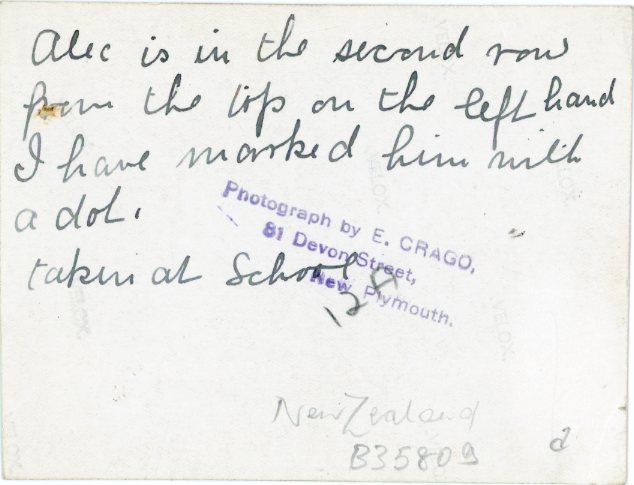 Alec is in the second row
from the top on the left hand
I have marked him with
a dot.
taken at School
Photograph by E. CRAGO,
81 Devon Street,
New Plymouth.
New Zealand
B35809
VELOX
VELOX
VELOX
VELOX
VELOX